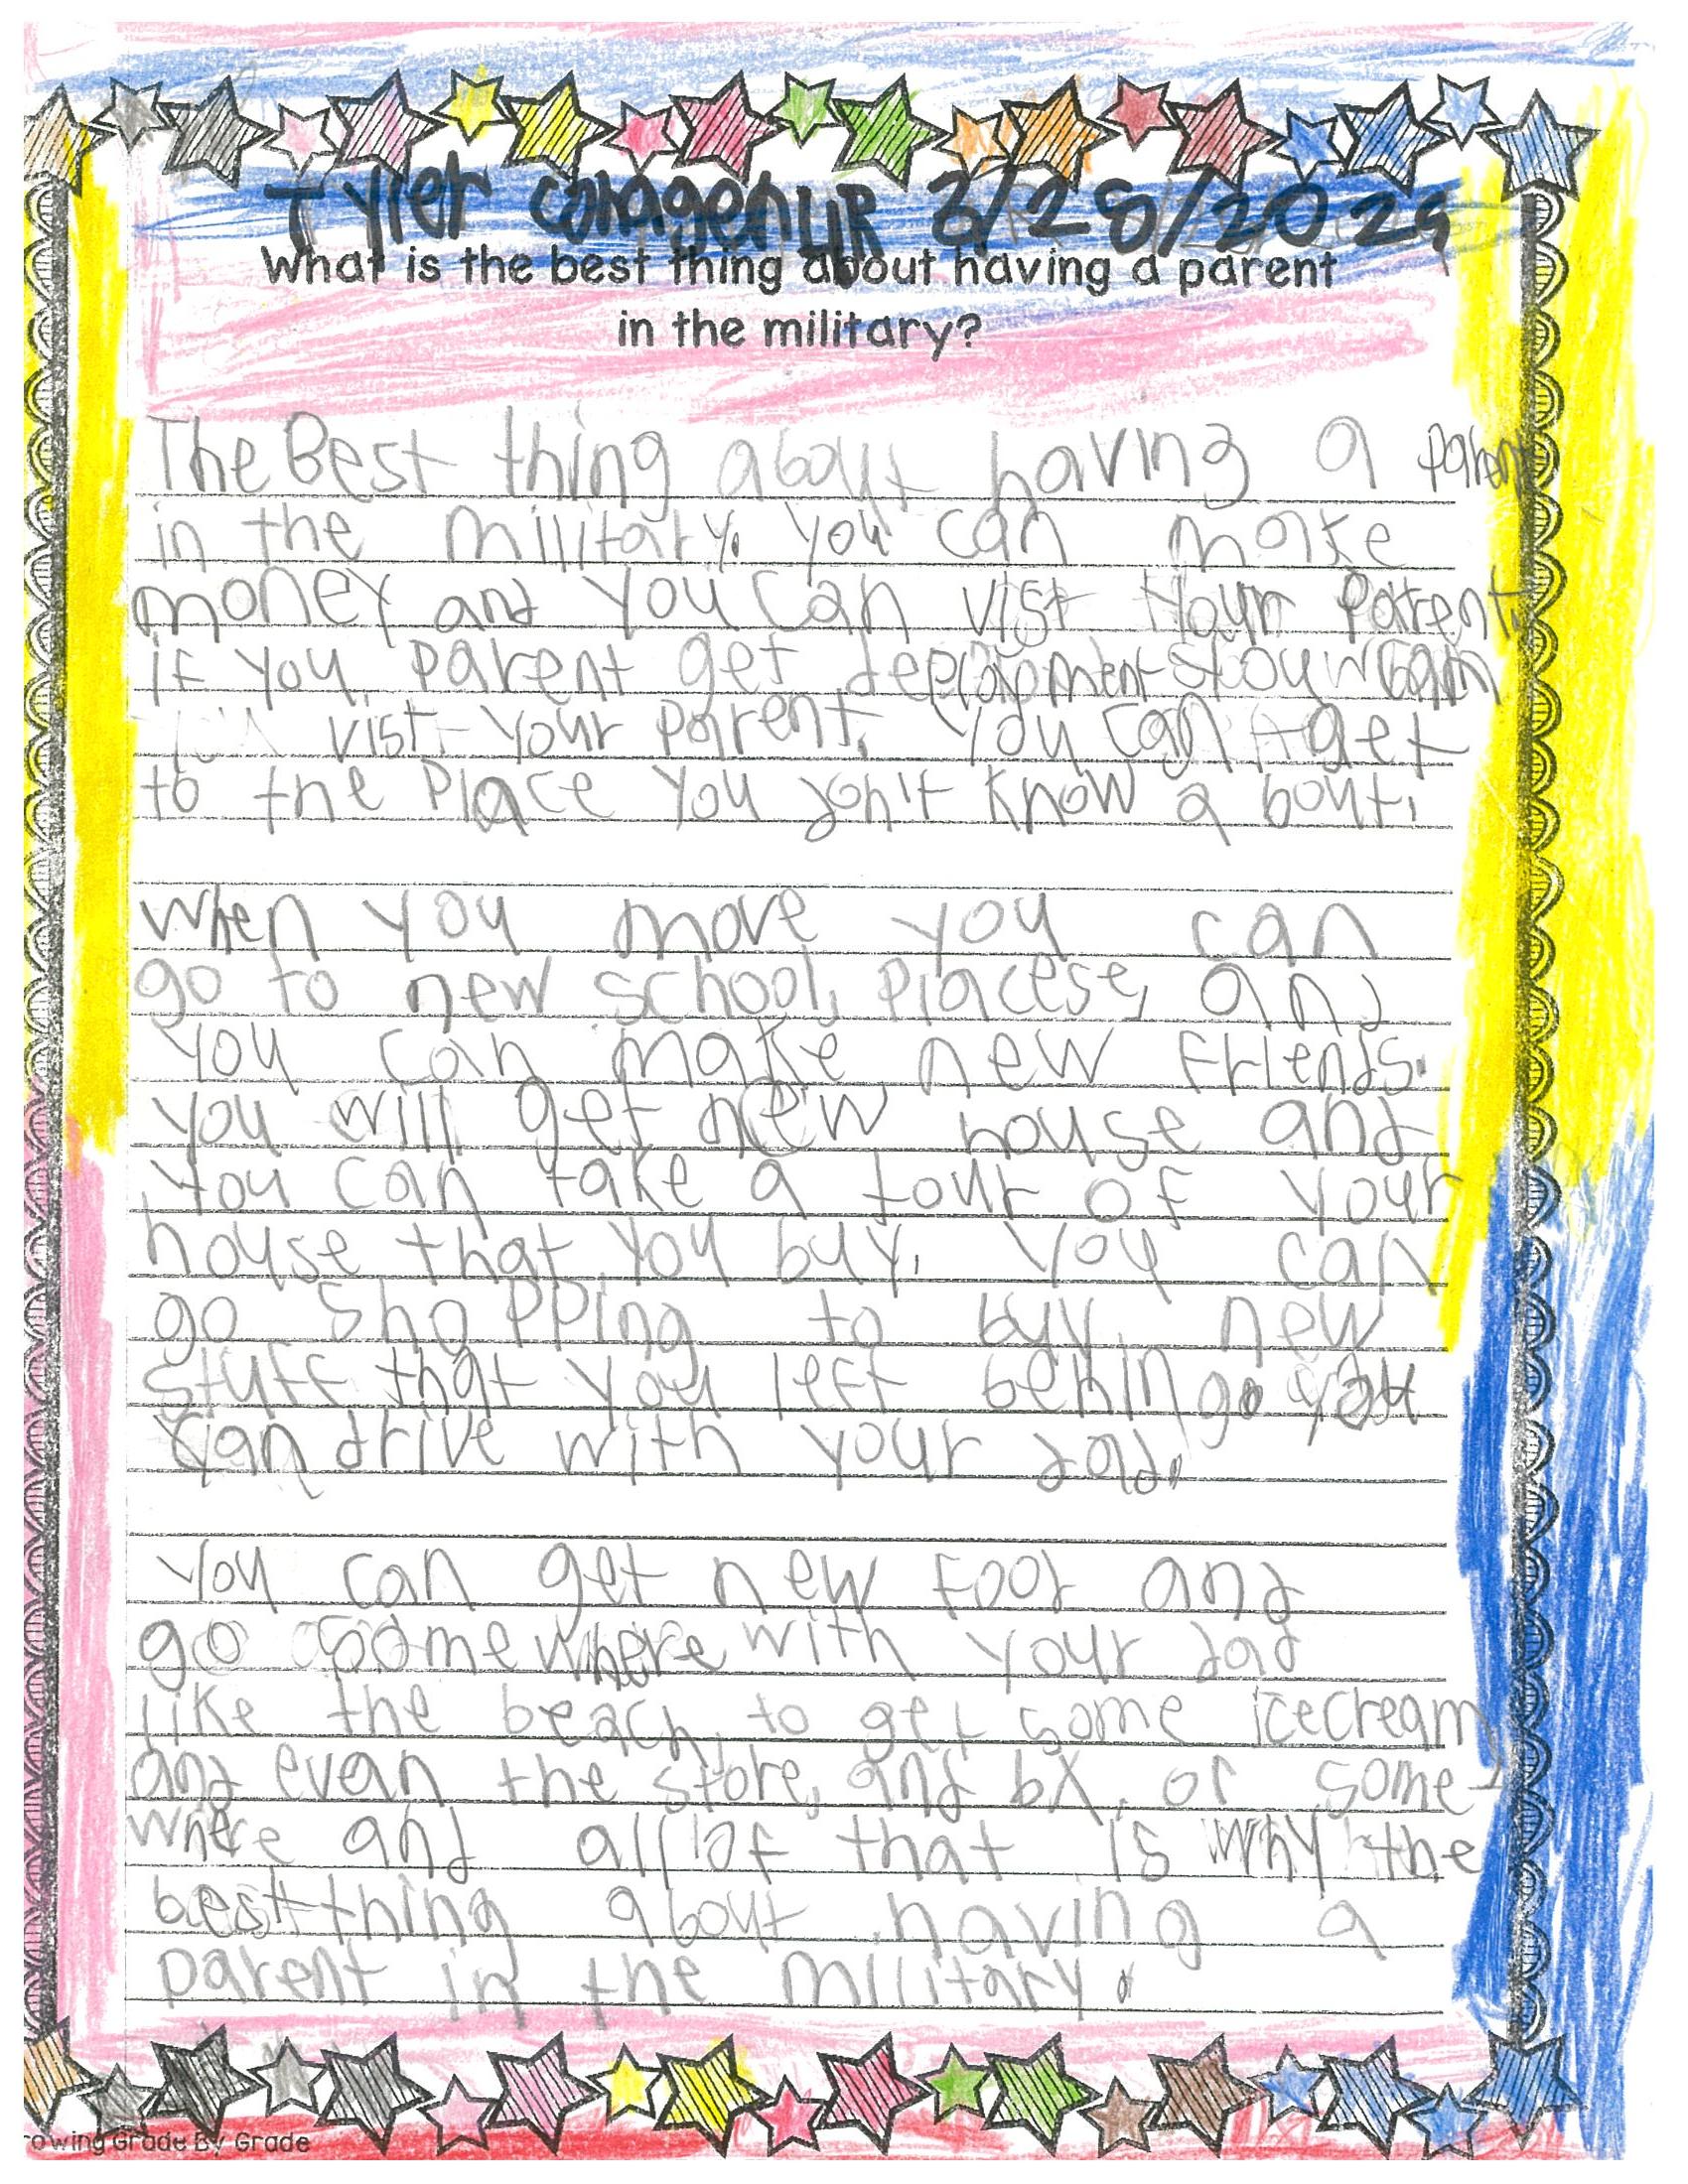 Tyler 3/28/2024
What is the best thing about having a parent
in the military?
The Best thing about having a parent
in the military. you can make
money and you can vist your parent.
if you parent get deeplopments you can
vist your parent. you can get
to the place you don't know a bout.
when you move you can
go to new school, placese, and
you can make new friends.
you will get new house and
you can take a tour of your
house that you buy. you can
go shopping to buy new
stuff that you left behing. you
can drive with your dad.
you can get new food and
go somewhere with your dad
like the beach, to get some icecream
and evan the store, and bx, or some-
where and all of that is why the
best thing about having a
parent in the military.
rowing Grade By Grade